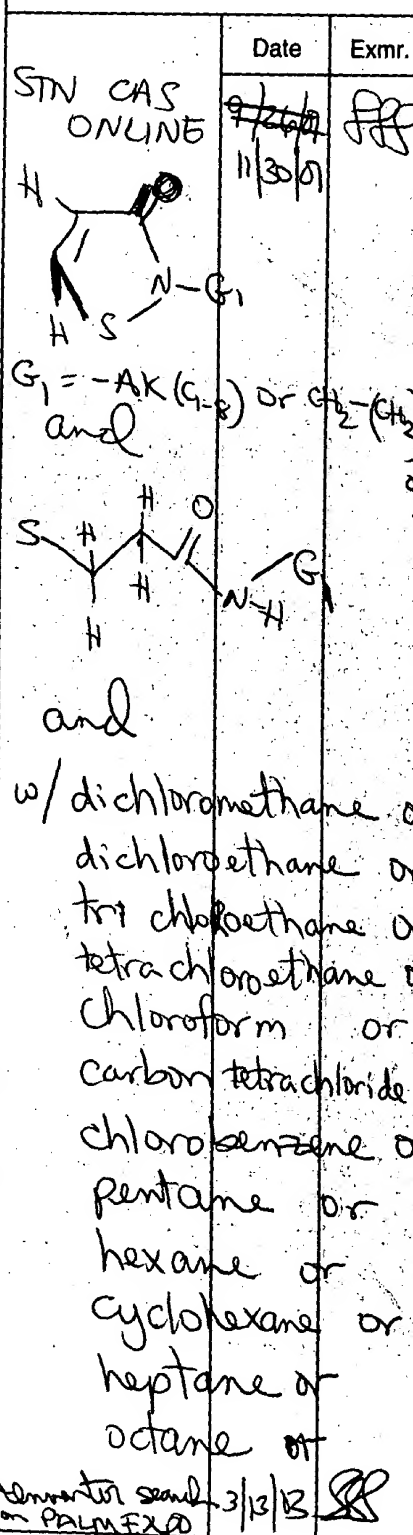 Date Exmr.
STN CAS
ONLINE
11/30/01
H
O
N-G1
H S
G1 = -AK (C1-8) or CH2-(CH2
and
O
S H H G1
H H N-H
and
w/ dichloromethane o
dichloroethane or
tri chloroethane o
tetrachloroethane o
chloroform or
carbon tetrachloride
chlorobenzene o
pentane or
hexane or
cyclohexane or
heptane or
octane or
search 3/13/03
on PALM EXPO